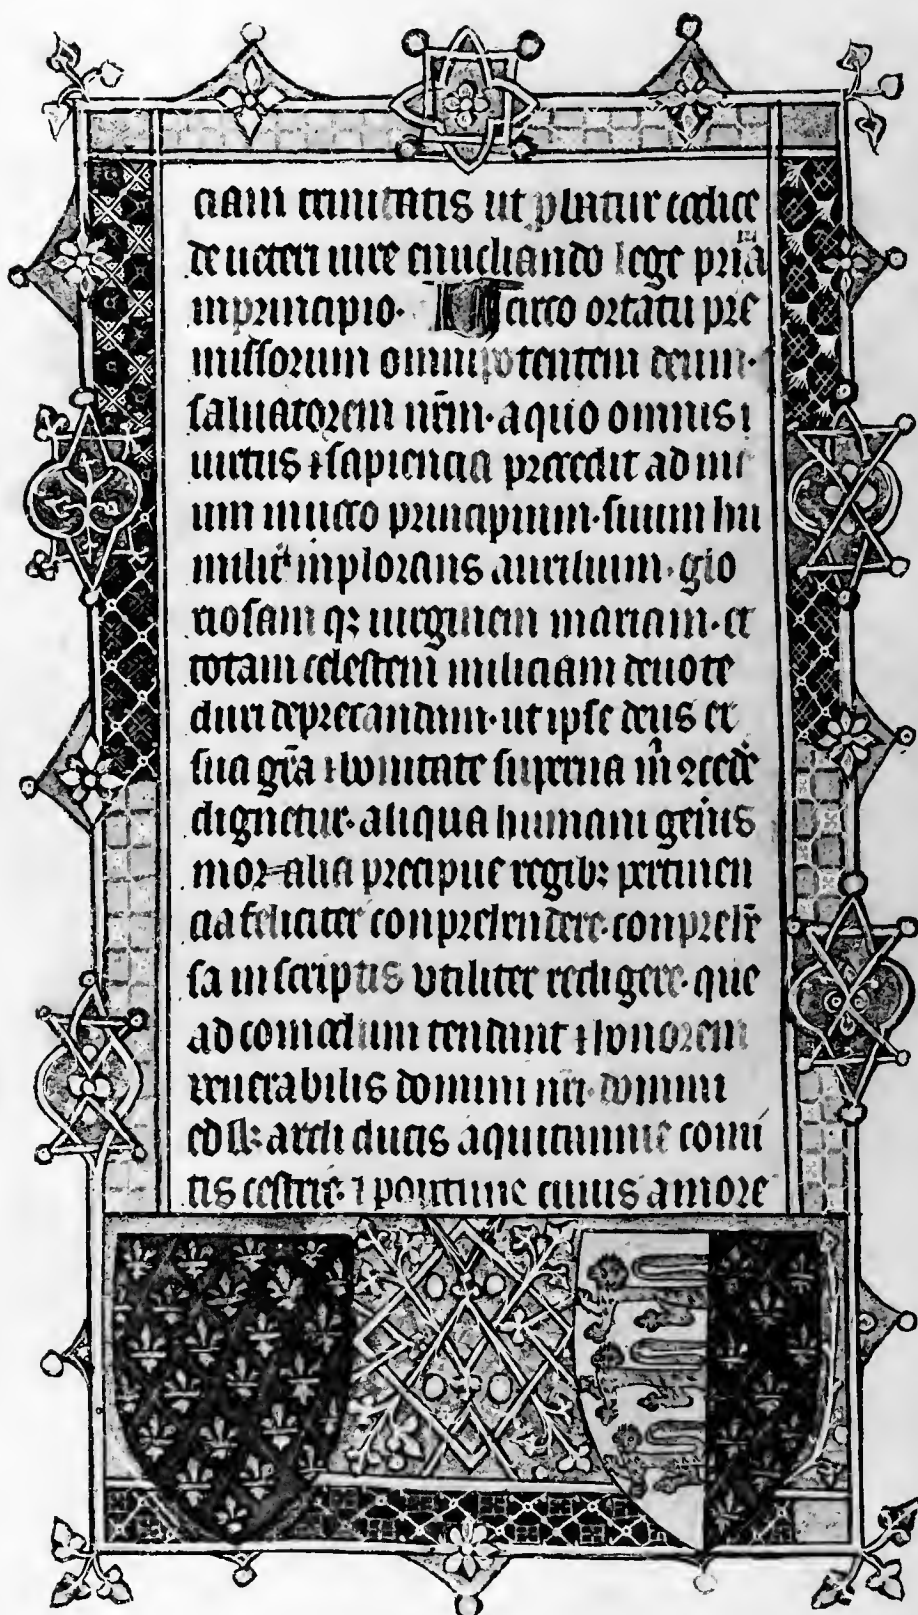 ciam trinitatis ut ꝓbatur codice
de ueteri iure enucliando lege prīa
inprincipio. Idcirco ortatu pre
missorum omnipotentem deum.
saluatorem nr̄m. a quo omnis
uirtus ⁊ sapiencia procedit ad me
um inuoco principium. suum hu
milit inplorans auxilium. glo
riosam qꝫ uirginem mariam. et
totam celestem miliciam deuote
duxi deprecandum. ut ipse deus ex
sua gr̄a ⁊ bonitate superna m ꝯcedē
dignetur. aliqua humani gen̄is
moralia precipue regibꝫ pertinen
cia feliciter conprehendere. conprehē
sa in scriptis utiliter redigere. que
ad comodum tendunt ⁊ honorem
uenerabilis domini nr̄i. domini
archi ducis aquitannie comi
tis cestrie. ⁊ pontiuie cuius amore